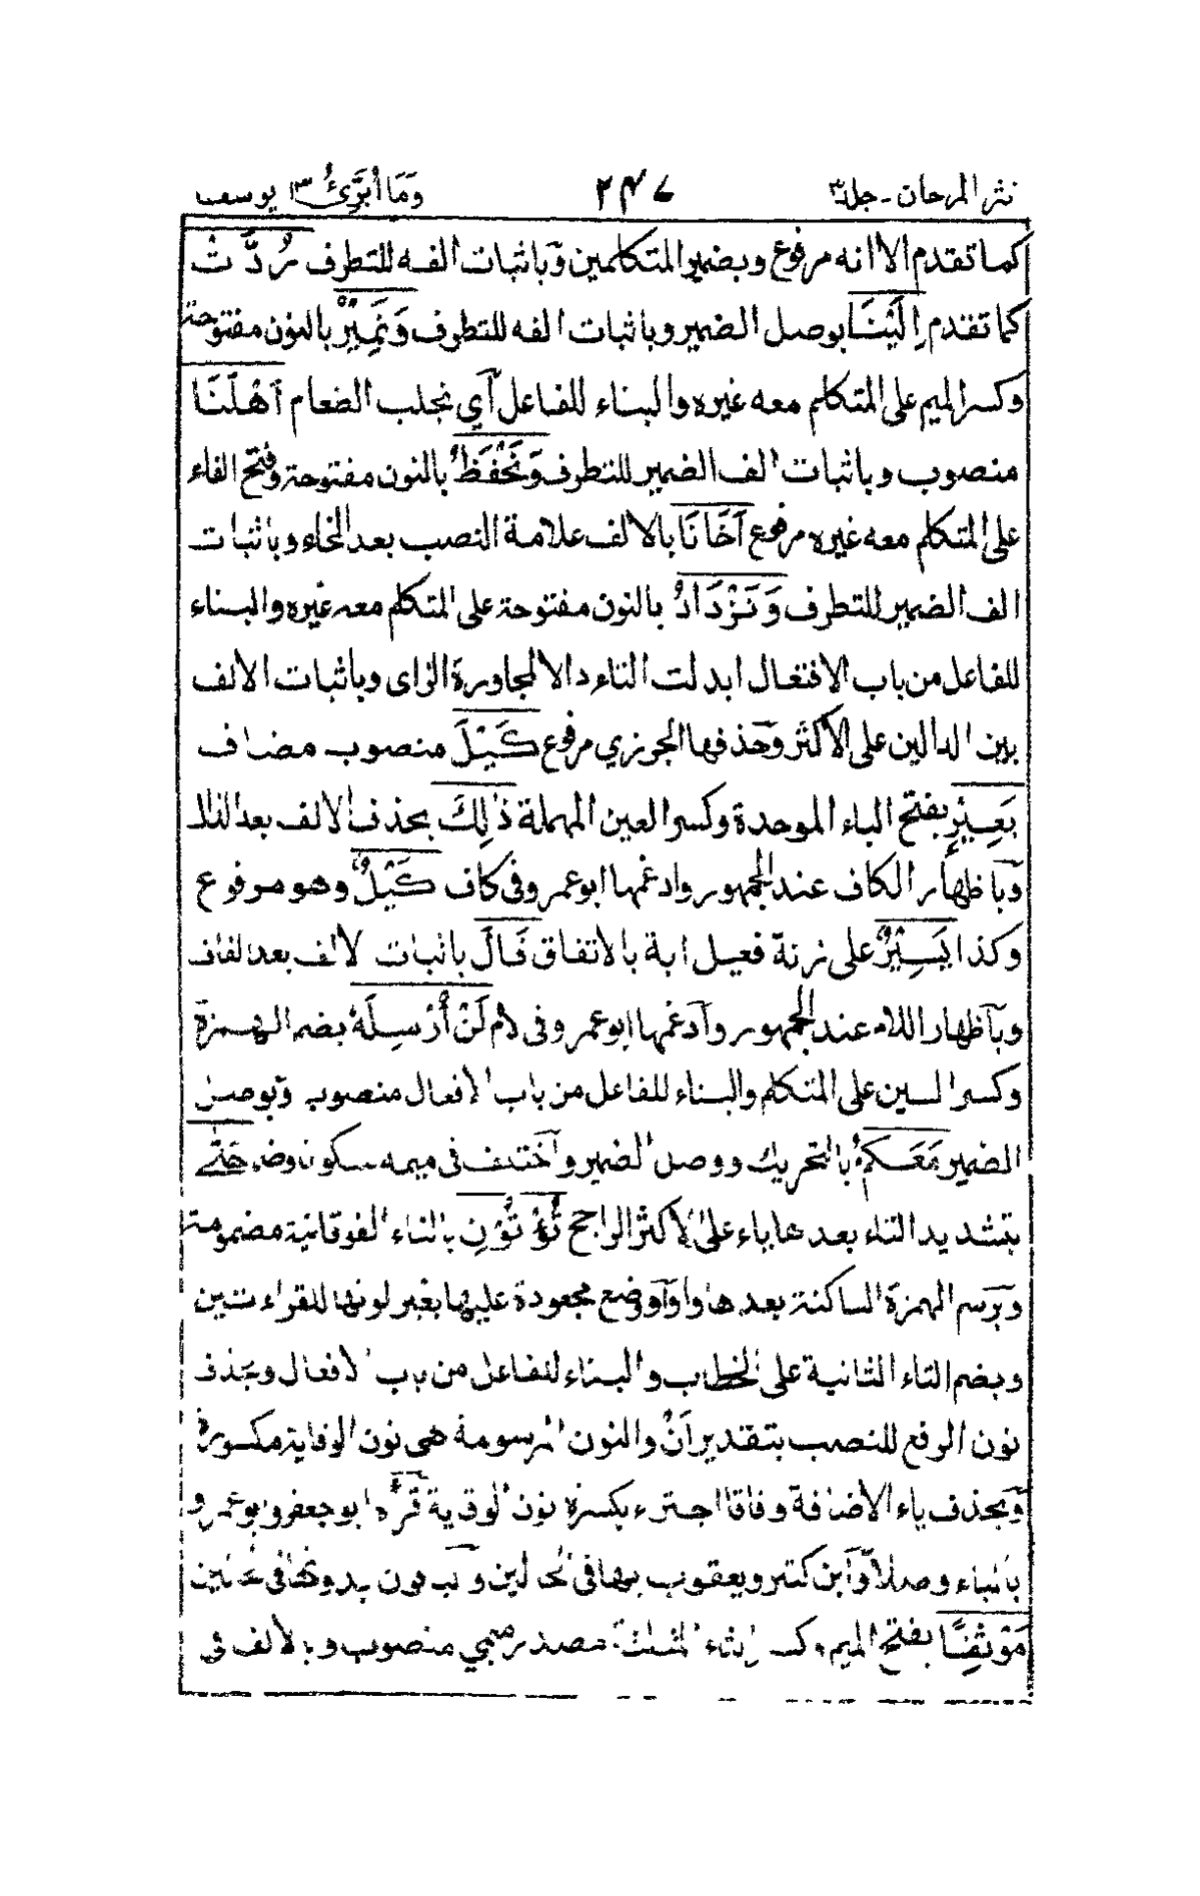 نثر المرجان - جلد ٣ ٢٤٧ وَمَا أُبَرِّئُ ١٣ يوسف
كما تقدم الا انه مرفوع وبضمير المتكلمين وباثبات الفه للتطرف رُدَّتْ
كما تقدم اِلَيْنَا بوصل الضمير وباثبات الفه للتطرف وَنَمِيْرُ بالنون مفتوحة
وكسر الميم على المتكلم معه غيره والبناء للفاعل اي نجلب الطعام اَهْلَنَا
منصوب وباثبات الف الضمير للتطرف وَنَحْفَظُ بالنون مفتوحة وفتح الفاء
على المتكلم معه غيره مرفوع اَخَانَا بالالف علامة النصب بعد الخاء وباثبات
الف الضمير للتطرف وَنَزْدَادُ بالنون مفتوحة على المتكلم معه غيره والبناء
للفاعل من باب الافتعال ابدلت التاء دالا لمجاورة الزاى وباثبات الالف
بين الدالين على الاكثر وحذفها الجوزي مرفوع كَيْلَ منصوب مضاف
بَعِيْرٍ بفتح الباء الموحدة وكسر العين المهملة ذٰلِكَ بحذف الالف بعد الذال
وباظهار الكاف عند الجمهور وادغمها ابو عمرو فى كاف كَيْلٌ وهو مرفوع
وكذا يَسِيْرٌ على زنة فعيل اية بالاتفاق قَالَ باثبات الالف بعد القاف
وباظهار اللام عند الجمهور وادغمها ابو عمرو فى لام لَنْ اُرْسِلَهُ بضم الهمزة
وكسر السين على المتكلم والبناء للفاعل من باب الافعال منصوب وبوصل
الضمير مَعَكُمْ بالتحريك ووصل الضمير واختلف فى ميمه سكونا وضما حَتّٰى
بتشديد التاء بعدها ياء على الاكثر الراجح تُؤْتُوْنِ بالتاء الفوقانية مضمومة
وبرسم الهمزة الساكنة بعدها واوا ووضع مجعودة عليها بغير لونها للقراءتين
وبضم التاء الثانية على الخطاب والبناء للفاعل من باب الافعال وبحذف
نون الرفع للنصب بتقدير اَنْ والنون المرسومة هى نون الوقاية مكسورة
وبحذف ياء الاضافة وفاقا اجتزاء بكسرة نون الوقاية قرأه ابو جعفر وابو عمرو
بالياء وصلا وابن كثير ويعقوب بها فى الحالين والباقون بدونها فى الحالين
مَوْثِقًا بفتح الميم وكسر الثاء المثلثة مصدر ميمي منصوب وبالالف فى